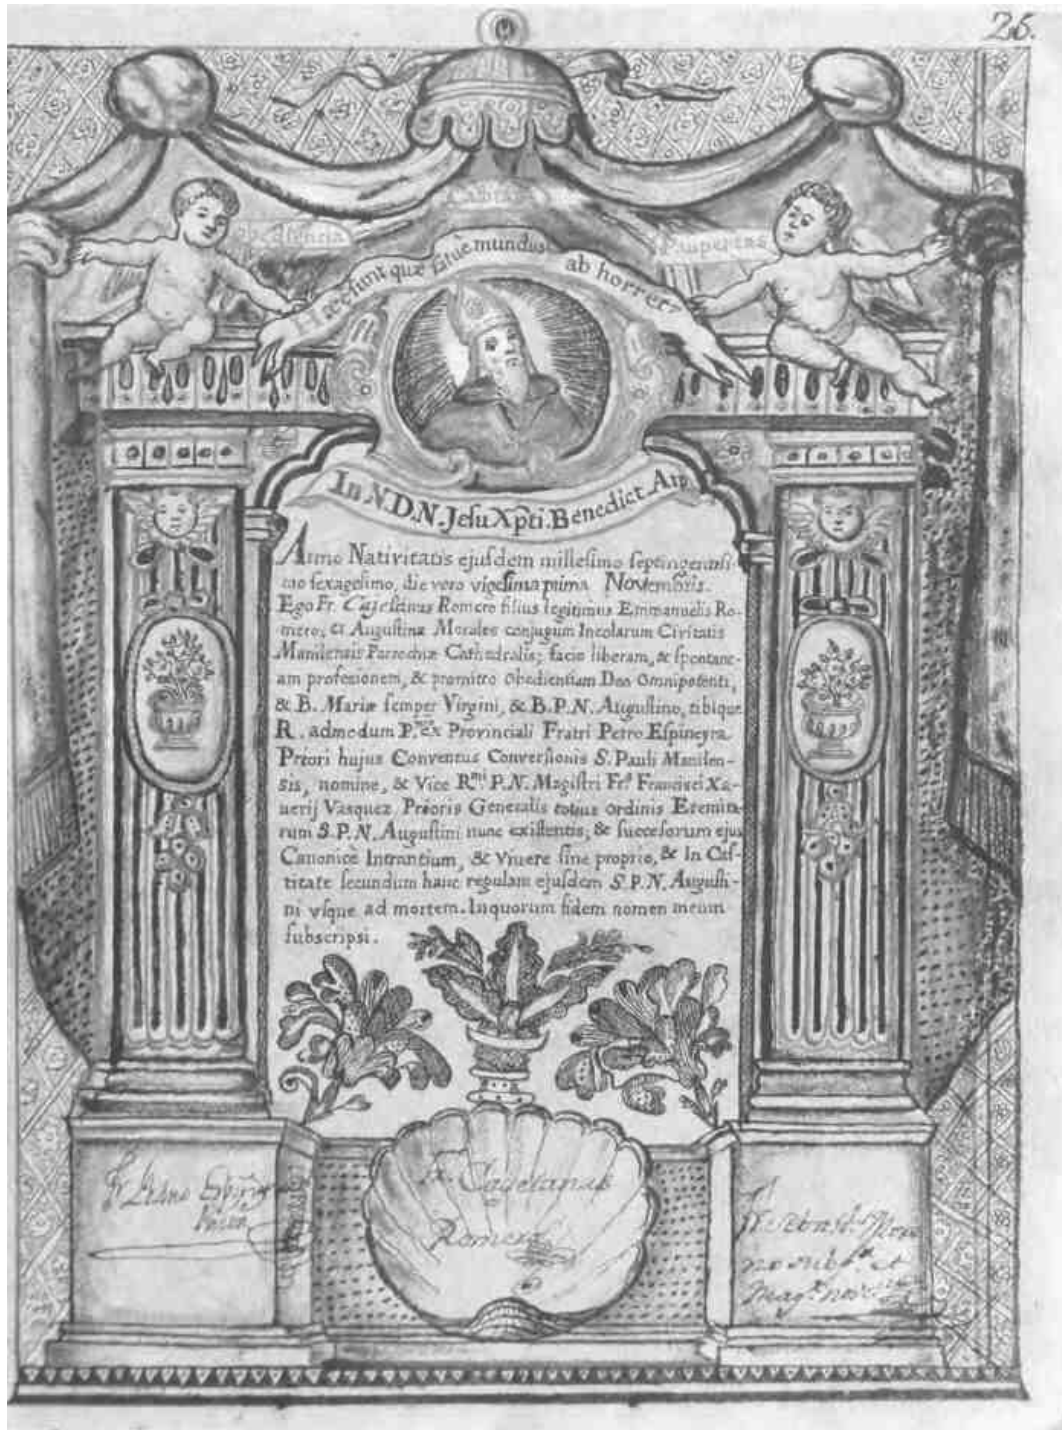 26.
Castitas
Obediencia
Paupertas
Hæc sunt quæ fatue mundus ab horret
In N.D.N. Jesu Xpti. Benedict. Am.
Anno Nativitatis ejusdem millesimo septingentesi-
mo sexagesimo, die vero vigesima prima Novembris.
Ego Fr. Cajetanus Romero filius legitimus Emmanuelis Ro-
mero, et Augustinæ Morales conjugum Incolarum Civitatis
Manilensis Parrochiæ Cathedralis; facio liberam, & spontane-
am profesionem, & promitto Obedientiam Deo Omnipotenti,
& B. Mariæ semper Virgini, & B.P.N. Augustino, tibique
R. admodum P. ex Provinciali Fratri Petro Espineyra
Priori hujus Conventus Conversionis S. Pauli Manilen-
sis, nomine, & Vice Rmi. P.N. Magistri Fr. Francisci Xa-
uerij Vasquez Prioris Generalis totius ordinis Eremita-
rum S.P.N. Augustini nunc existentis, & succesorum ejus
Canonicè Intrantium, & Viuere sine proprio, & In Cas-
titate secundum hanc regulam ejusdem S.P.N. Augusti-
ni vsque ad mortem. Inquorum fidem nomen meum
subscripsi.
Fr. Cayetano
Romero
Fr. Pedro
Prior
et